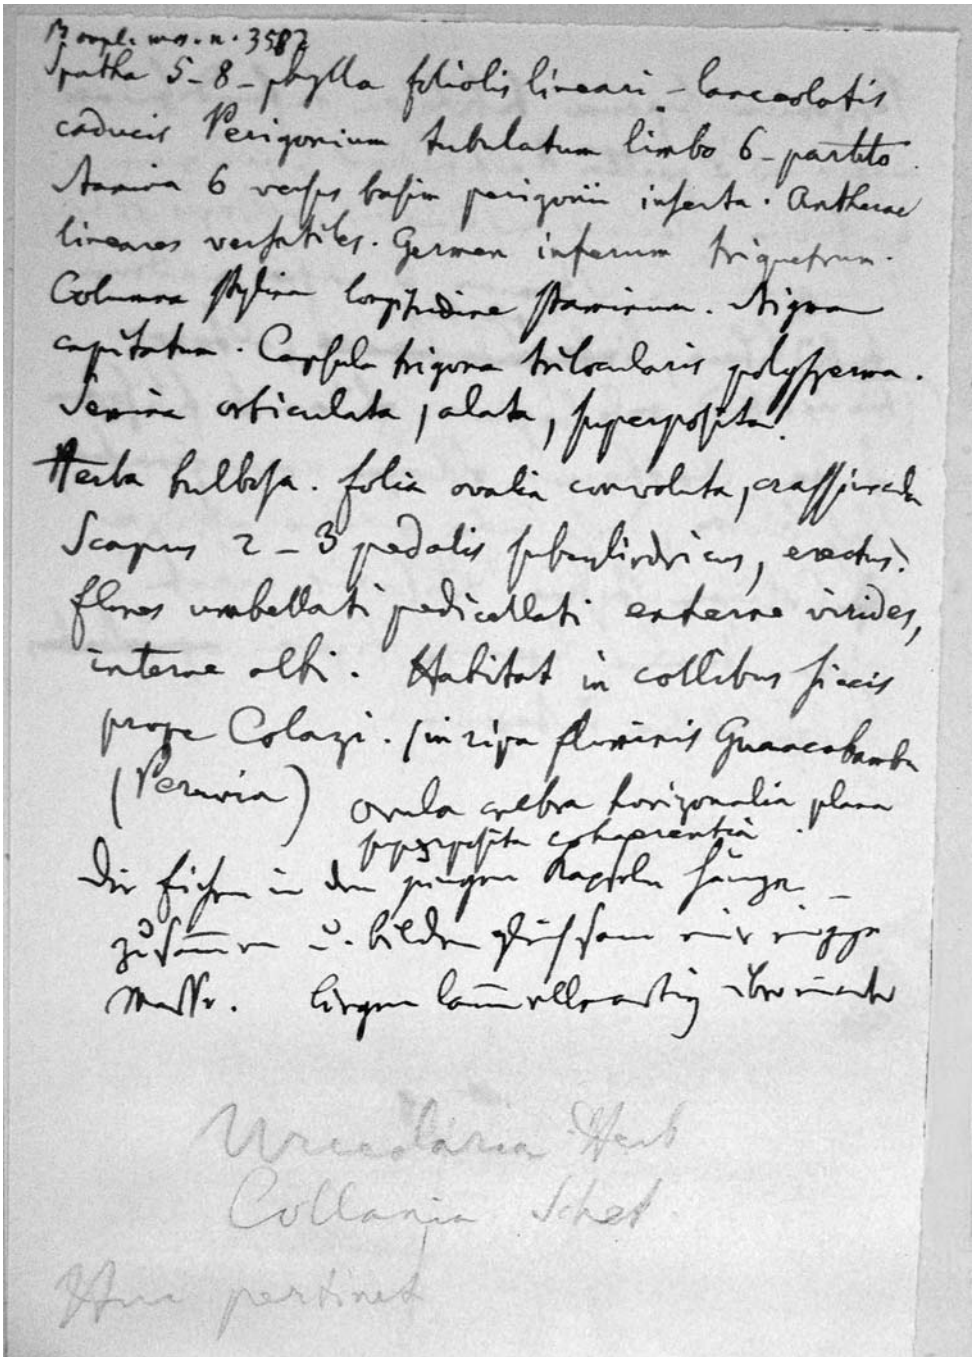 Bonpl. mss. n. 3582
Spatha 5-8-phylla foliolis lineari-lanceolatis
caducis Perigonium tubulatum limbo 6-partito.
Stamina 6 versus basim perigonii inserta. Antherae
lineares versatiles. Germen inferum triquetrum.
Columna stylina longitudine staminum. Stigma
capitatum. Capsula trigona trilocularis polysperma.
Semina orbiculata, alata, superposita.
Herba bulbosa. folia ovalia convoluta,
Scapus 2-3 pedalis subcylindricus, erectus.
flores umbellati pedicellati externe virides,
interne albi. Habitat in collibus siccis
prope (in ripa fluminis Guancabamba
(Peruvia) ovula crebra horizonalia plana
superposita cohaerentia.
Die in den jungen Kapseln hängen
zusam̄en u. bilden gleichsam eine einzige
Masse. liegen lam̄ellenartig
Urceolaria Herb
Collania Schet
Huc pertinet